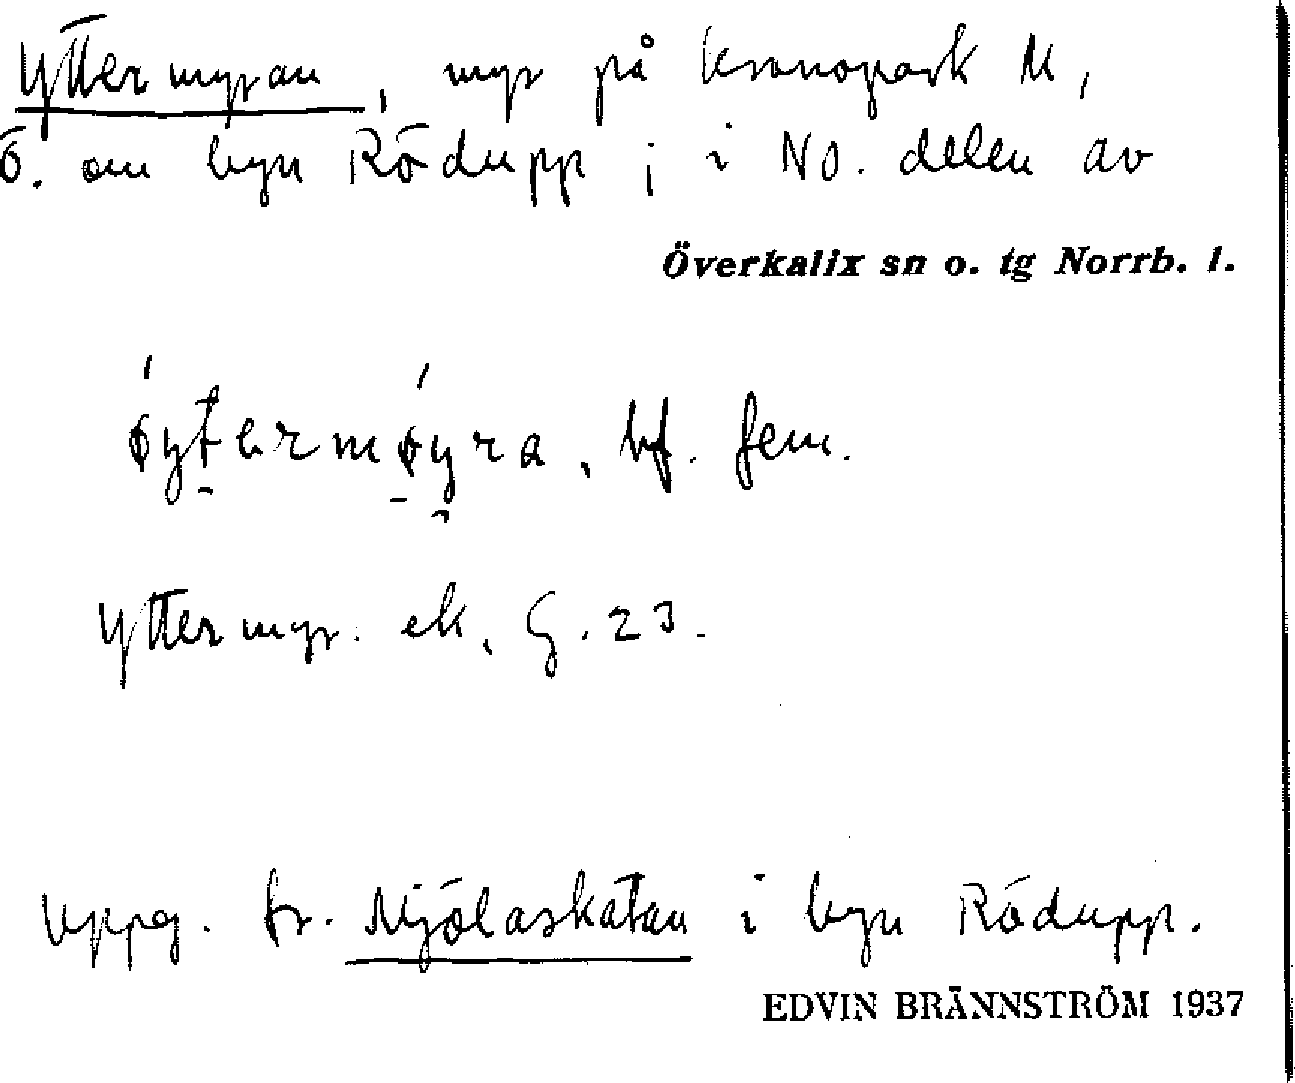 Yttermyran, myr på kronopark M,
Ö. om byn Rödupp; i NO. delen av
Överkalix sn o. tg Norrb. l.
óytermóyra, bf. fem.
Yttermyr. ek. G. 23.
Uppg. fr. Mjölaskatan i byn Rödupp.
EDVIN BRÄNNSTRÖM 1937